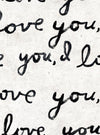 love you,
e you, I lo
love you,
love you